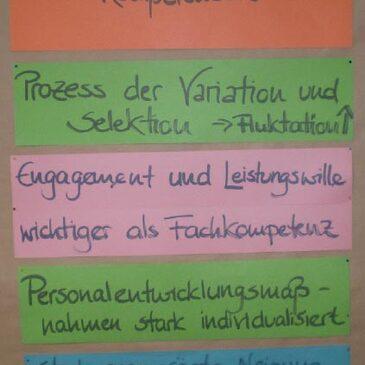 Prozess der Variation und
Selektion → Fluktation ↑
Engagement und Leistungswille
wichtiger als Fachkompetenz
Personalentwicklungsmaß-
nahmen stark individualisiert